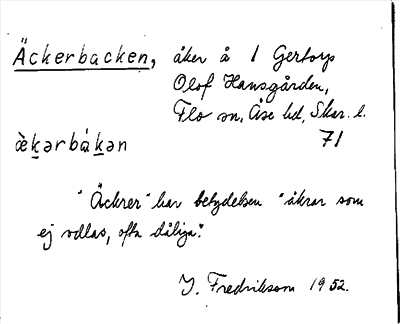 Äckerbacken, åker å 1 Gertorp
Olof Hansgården,
Flo sn, Åse hd, Skar. l.
ǟk̲ərbák̲ən 71
"Äckrer" har betydelsen "åkrar som
ej odlas, ofta dåliga".
Y. Fredriksson 1952.